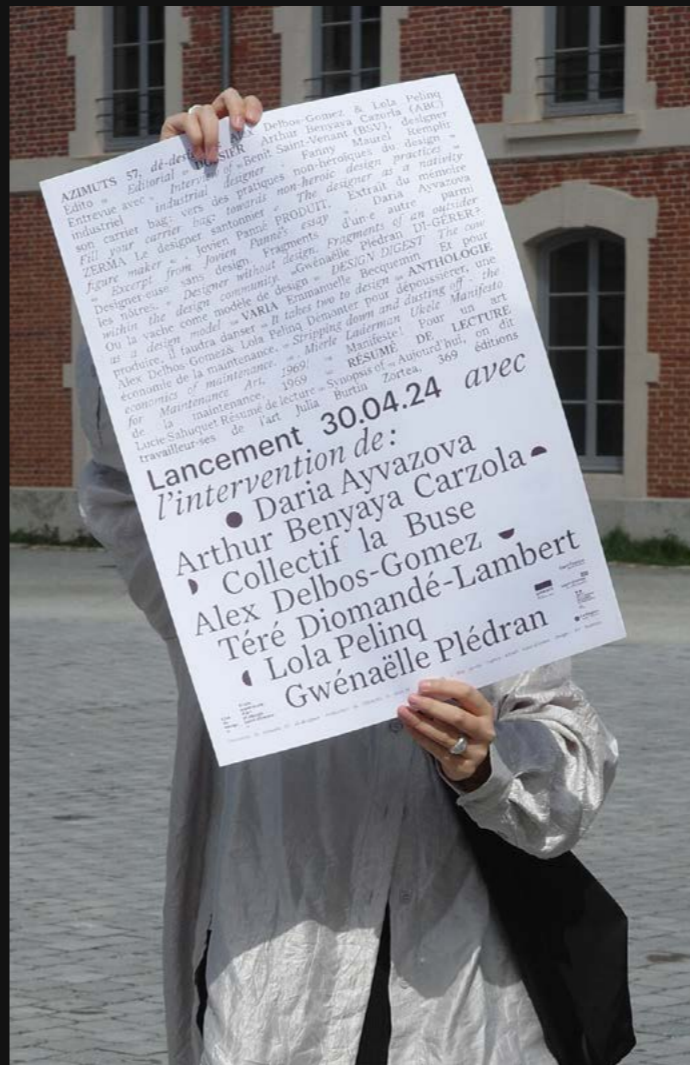 AZIMUTS 57, dé-des Alex Delbos-Gomez & Lola Pelinq
Edito " Editorial " DOSSIER Arthur Benyaya Cazorla (ABC)
Entrevue avec " Interview of " Benit Saint-Venant (BSV), designer
industriel " industrial designer " Fanny Maurel Remplir
son carrier bag: vers des pratiques non-héroïques du design "
Fill your carrier bag: towards non-heroic design practices "
ZERMA Le designer santonnier " The designer as a nativity
figure maker " Jovien Panné PRODUIT. Extrait du mémoire
" Excerpt from Jovien Panné's essay " Daria Ayvazova
Designer·euse sans design. Fragments d'un·e autre parmi
les nôtres. " Designer without design. Fragments of an outsider
within the design community. "Gwénaëlle Plédran DI-GÉRER?
Ou la vache comme modèle de design " DESIGN DIGEST The cow
as a design model " VARIA Emmanuelle Becquemin Et pour
produire, il faudra danser " It takes two to design " ANTHOLOGIE
Alex Delbos Gomez& Lola Pelinq Démonter pour dépoussiérer, une
économie de la maintenance. " Stripping down and dusting off : the
economics of maintenance. " Mierle Laderman Ukeles Manifesto
for Maintenance Art, 1969! " Manifeste! Pour un art
de la maintenance, 1969 " RÉSUMÉ DE LECTURE
Lucie Sahuquet Résumé de lecture " Synopsis of " Aujourd'hui, on dit
travailleur·ses de l'art Julia Burtin Zortea, 369 éditions
Lancement 30.04.24 avec
l'intervention de :
Daria Ayvazova
Arthur Benyaya Carzola
Collectif la Buse
Alex Delbos-Gomez
Téré Diomandé-Lambert
Lola Pelinq
Gwénaëlle Plédran